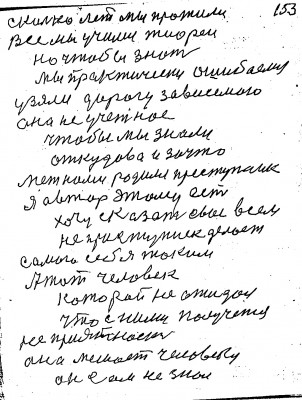 153
сколко лет мы прожили
Все мы учили теореи
но чтобы знот
мы практически ошибаемся
узяли дорогу зависемого
она не учетное
чтобы мы знали
откудова и зачто
родили преступник
я автор этому ест
хочу сказат свое всем
не преступник делает
самого себя таким
А тот человек
которай не ожидал
что с ними получется
не приятност
она мешает человеку
он сам не знал